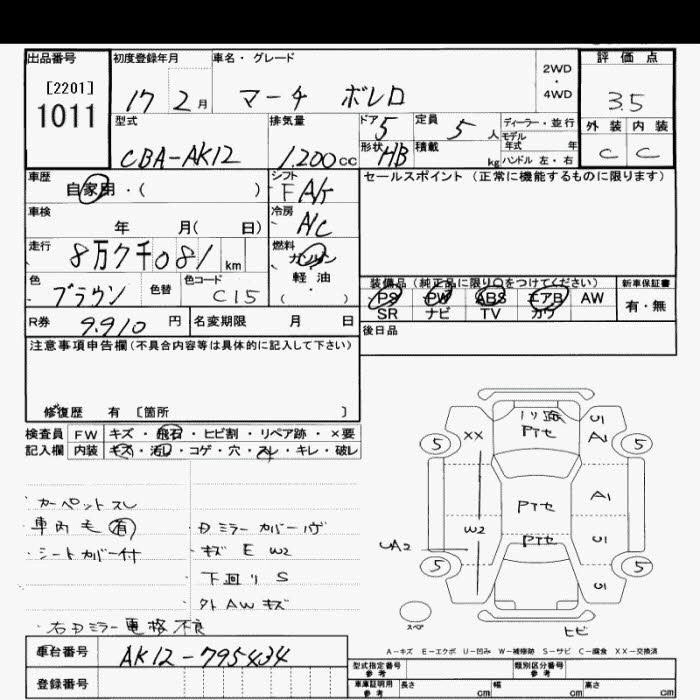 出品番号 初度登録年月 車名・グレード 2WD ・ 4WD 評価点
[2201]
1011
17 2月 マーチ ボレロ 3.5
型式 排気量 ドア 5 定員 5人 ディーラー・並行 外装 内装
CBA-AK12 1.200cc 形状 HB 積載 kg モデル年式 年 ハンドル 左・右 C C
車歴 自家用・( ) シフト FA/t セールスポイント(正常に機能するものに限ります)
車検 年 月( 日) 冷房 A/C
走行 8万7千081km 燃料 ガソリン・軽油 ( ・ )
装備品(純正品に限り○をつけてください) 新車保証書
色 ブラウン 色替 色コード C15 PS PW ABS エアB AW 有・無
SR ナビ TV カワ
R券 9.910円 名変期限 月 日 後日品
注意事項申告欄(不具合内容等は具体的に記入して下さい)
修復歴 有 [箇所 ]
検査員 FW キズ・飛石・ヒビ割・リペア跡・×要
記入欄 内装 キズ・汚レ・コゲ・穴・スレ・キレ・破レ
カーペットスレ
車内毛有 Dミラーカバーハゲ
シートカバー付 キズ E W2
下回りS
外AWキズ
右Dミラー電格不良
Pタセ
U1
XX A1
5 5
Pタセ A1
W2 Pタセ U1
UA2
5 5
U1
スペア ヒビ
A-キズ E-エクボ U-凹み W-補修跡 S-サビ C-腐食 XX-交換済
車台番号 AK12-795434
型式指定番号 参考 類別区分番号 参考
登録番号 車庫証明用 参考 長さ cm 幅 cm 高さ cm